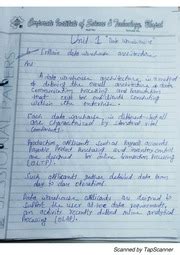 Corporate Institute of Science & Technology, Bhopal
Unit - 1
Explain data warehouse architecture
Ans
A data warehouse architecture is a method
of defining the overall architecture of data
Communication processing and
that exist for end clients computing
within the enterprise.
Each data warehouse is different but all
are characterized by standard vital
Components.
Production applicants such as payroll accounts
payable Product purchasing and inventory control
are designed for online transaction processing
(OLTP).
Such applicants gather detailed data from
day to day operations.
Data warehouse applicants are designed to
support the user ad-hoc data requirements,
an activity recently dubbed online analytical
processing (OLAP).
Scanned by TapScanner